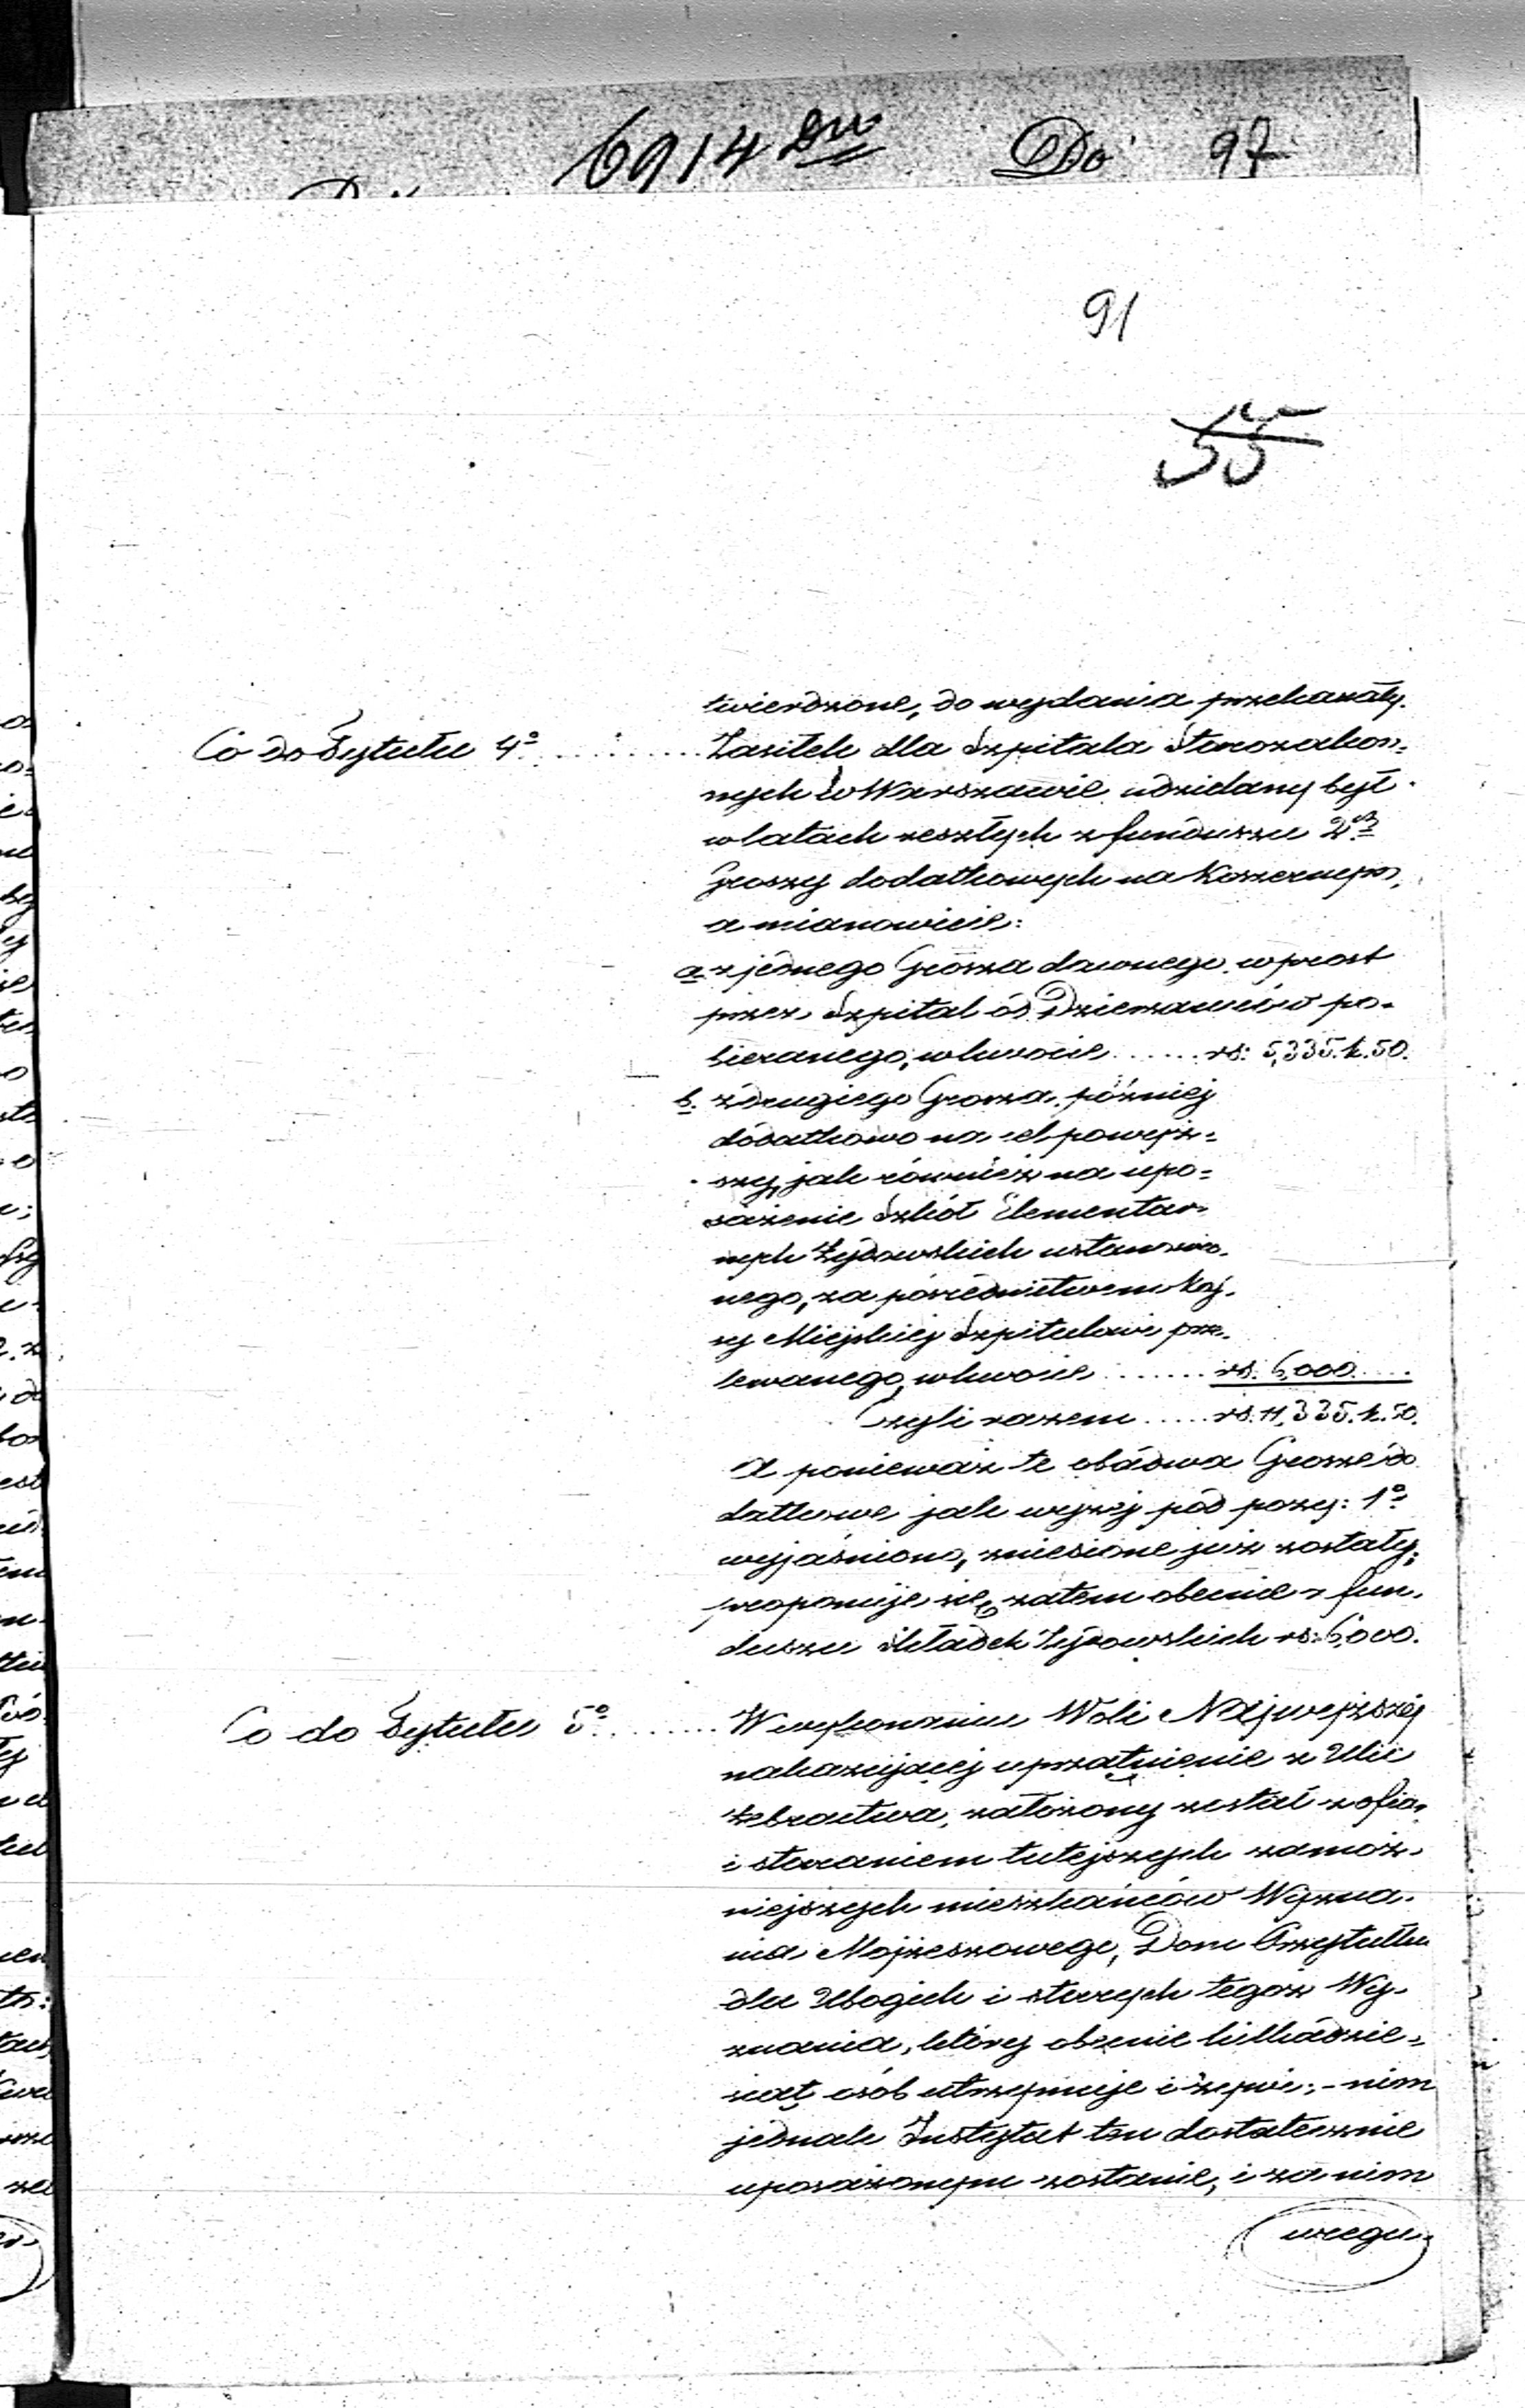 6914 Do 97
91
55
twierdzone, do wydania przekazały.
Co do Tytułu 4º ......... Zasiłek dla Szpitala Starozakon=
nych w Warszawie udzielany był
w latach zeszłych z funduszu 2ch
Groszy dodatkowych na Koszernem,
a mianowicie:
a. z jednego Grosza dawnego wprost
przez Szpital od Dzierzawców po=
bieranego, w kwocie ...... rs: 5,335. k. 50.
b. z drugiego Grosza później
dodatkowo na cel powyż=
szy, jak również na upo=
sażenie Szkół Elementar=
nych Żydowskich ustanowio=
nego, za pośrednictwem Kas=
sy Miejskiej Szpitalowi prze=
lewanego, w kwocie ....... rs. 6,000 ....
Czyli razem ..... rs. 11,335. k. 50.
A ponieważ te obádwa Grosze do
datkowe jak wyżej pod pozy: 1º
wyjaśniono, zniesione już zostały,
proponuje się zatem obecnie z fun=
duszu Składek Żydowskich rs: 6,000.
Co do Tytułu 5º ....... W wykonaniu Woli Najwyższéj
nakazującej uprzątnienie z Ulic
żebractwa, założony został z ofiar
i staraniem tutejszych zamoż=
niejszych mieszkańców Wyzna=
nia Mojżeszowego, Dom Przytułku
dla Ubogich i starych tegoż Wy=
znania, który obecnie kilkadzie=
siąt osób utrzymuje i żywi; - nim
jednak Instytut ten dostatecznie
uposażonym zostanie, i za nim
uregu=